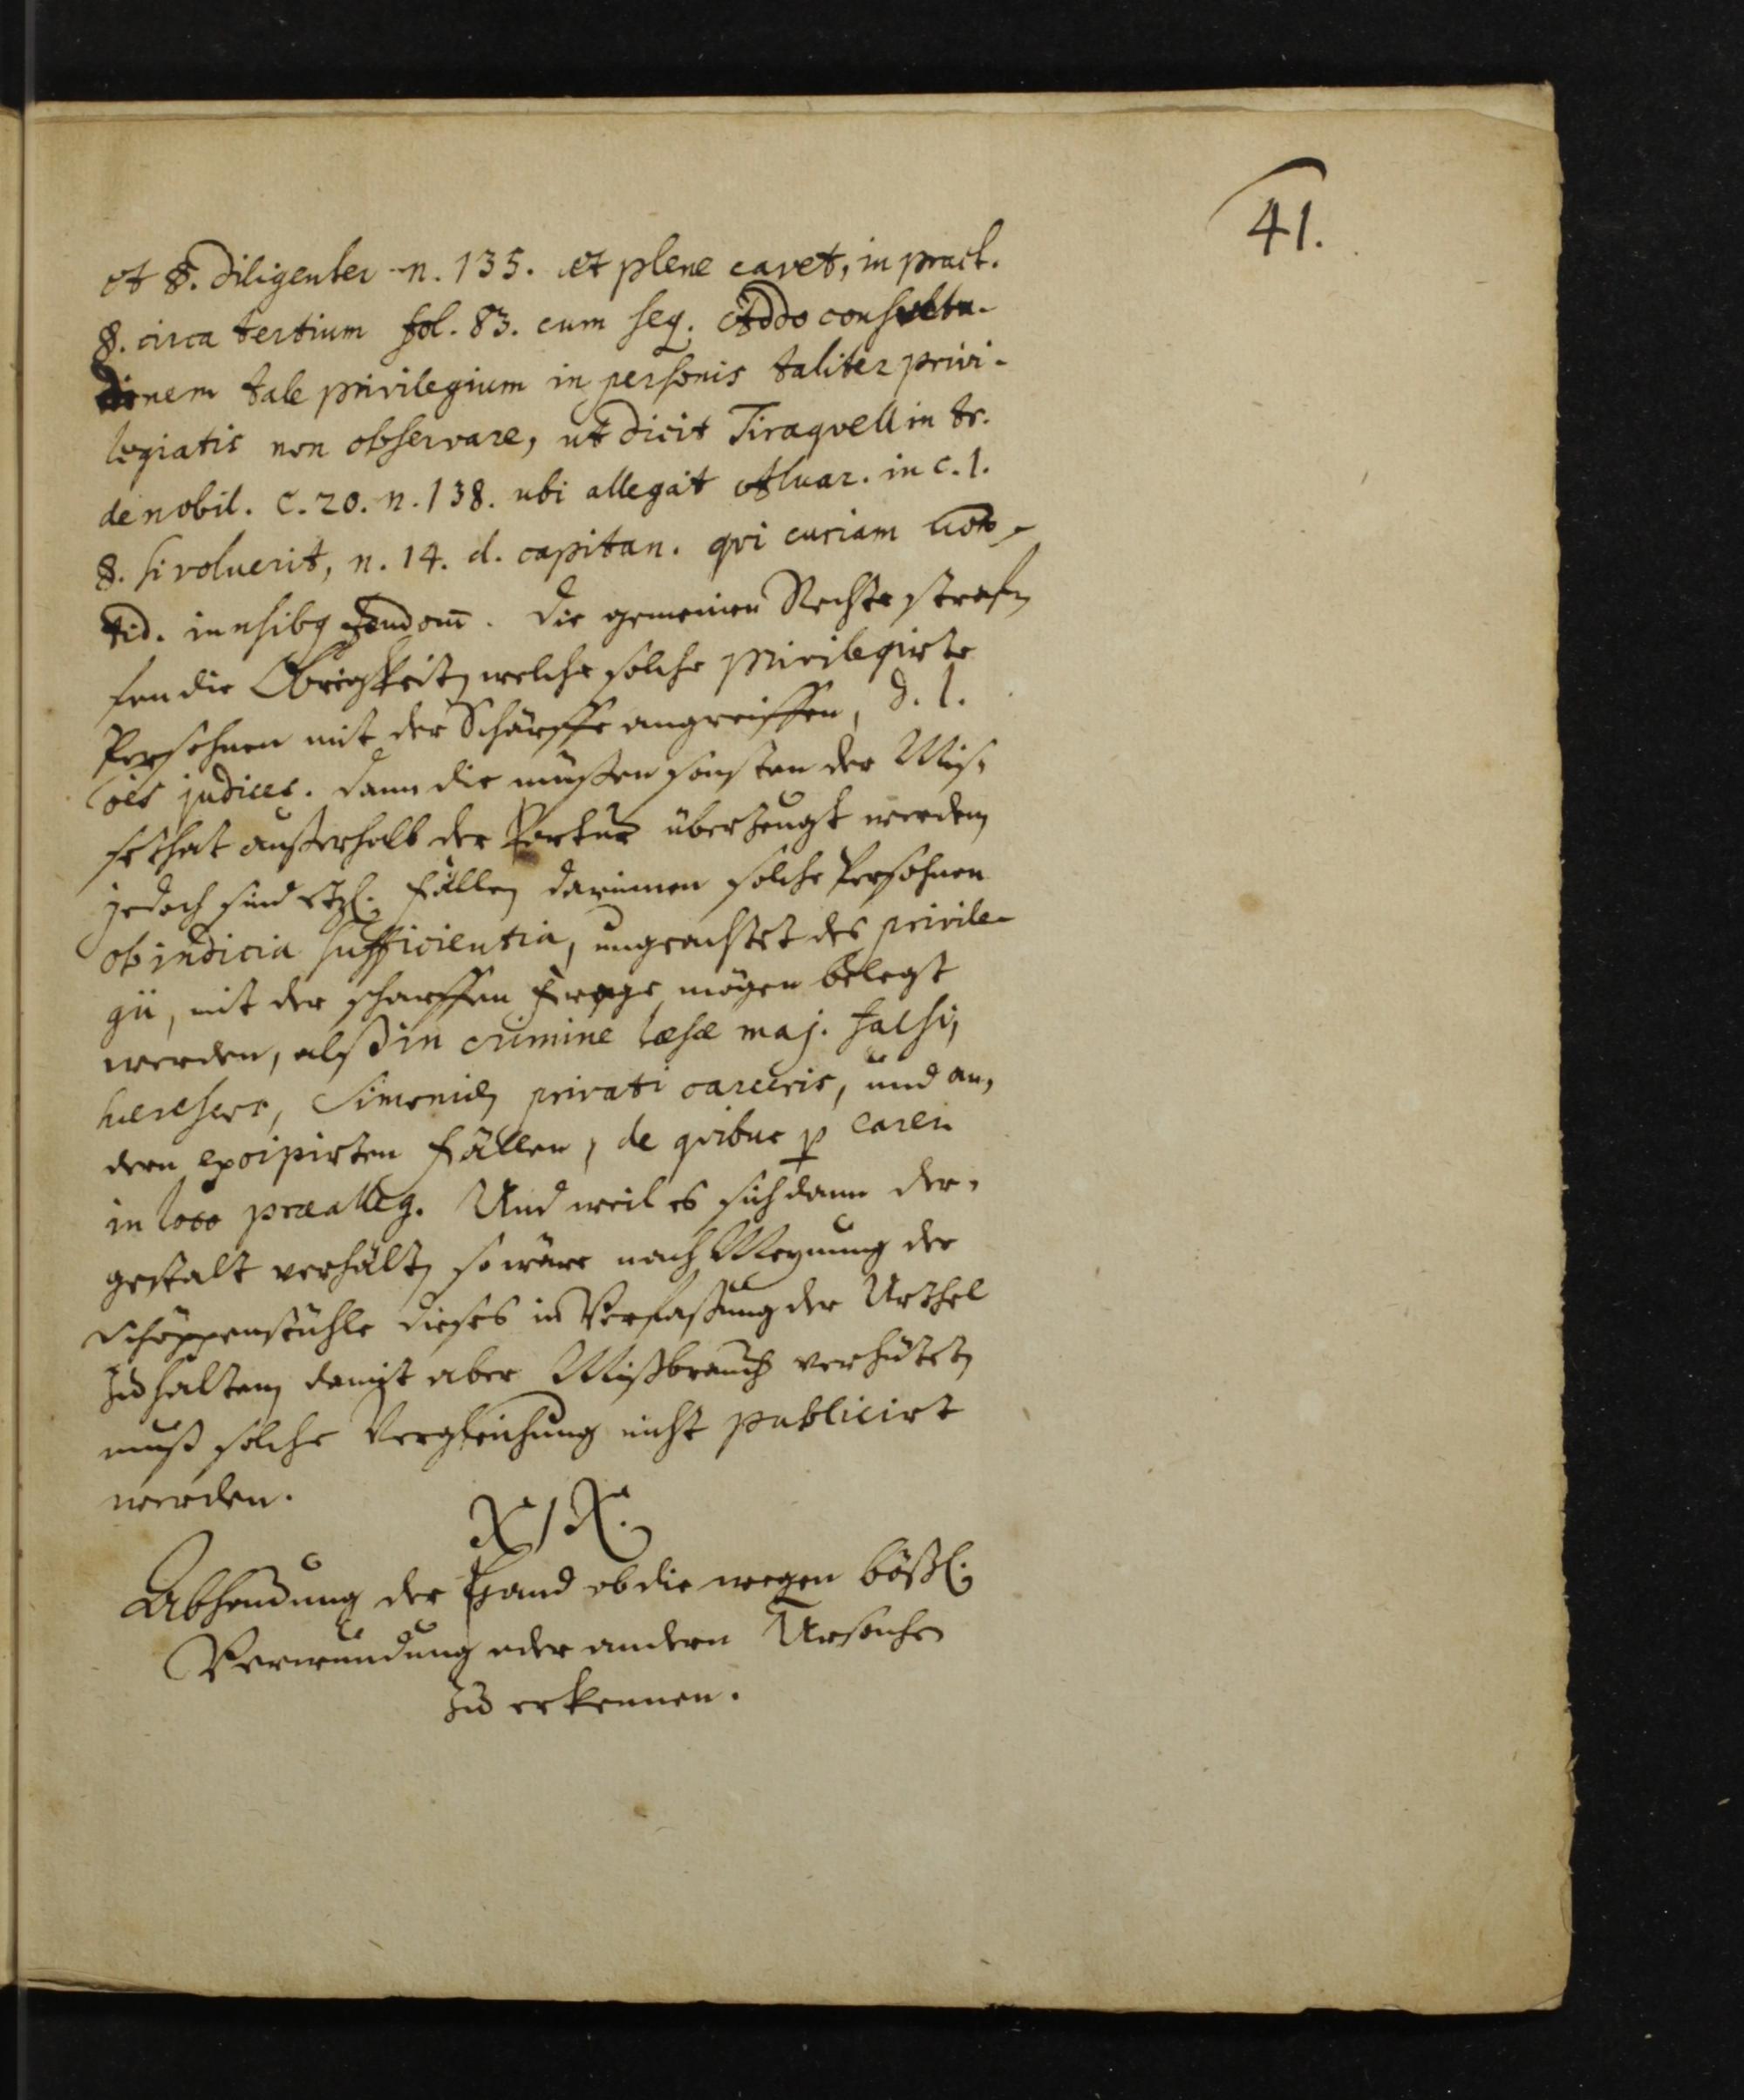 41.
et §. diligenter n. 135. et plene cavet, in pract.
§. circa tertium fol. 83. cum seq. Addo consvetu-
dinem tale privilegium in personis taliter privi-
legiatis non observare, ut dicit Tiraqvell in tr.
de nobil. c. 20. n. 138. ubi allegat Alvar. in c. 1.
§. si voluerit, n. 14. d. capitan. qvi curiam
vid. in usibq feudom̄. Die gemeinen Rechte straf„
fen die Obrigkeit, welche solche privilegirte
Persohnen mit der Schärffe angreiffen, d. l.
oēs judices. dann die müßen sonsten der Mis„
sethat außerhalb der Tortur überzeugt werden,
jedoch sind etzl. Fälle, darinnen solche Persohnen
ob indicia sufficientia, ungeachtet des privile-
gii, mit der scharffen Frage mögen belegt
werden, alß in crimine læsæ maj. falsi,
hæreseos, Simoniæ, privati carceris, und an„
dern excipirten Fällen, de qvibus p
in loco præalleg. Und weil es sich dann der„
gestalt verhält, so wäre nach Meynung der
Schöppenstühle dieses in Verfaßung der Urthel
zu halten, damit aber Mißbrauch verhütet,
muß solche Vergleichung nicht publicirt
werden.
XIX.
Abhauung der Hand ob die wegen bößl.
Verwundung oder andern Ursachen
zu erkennen.